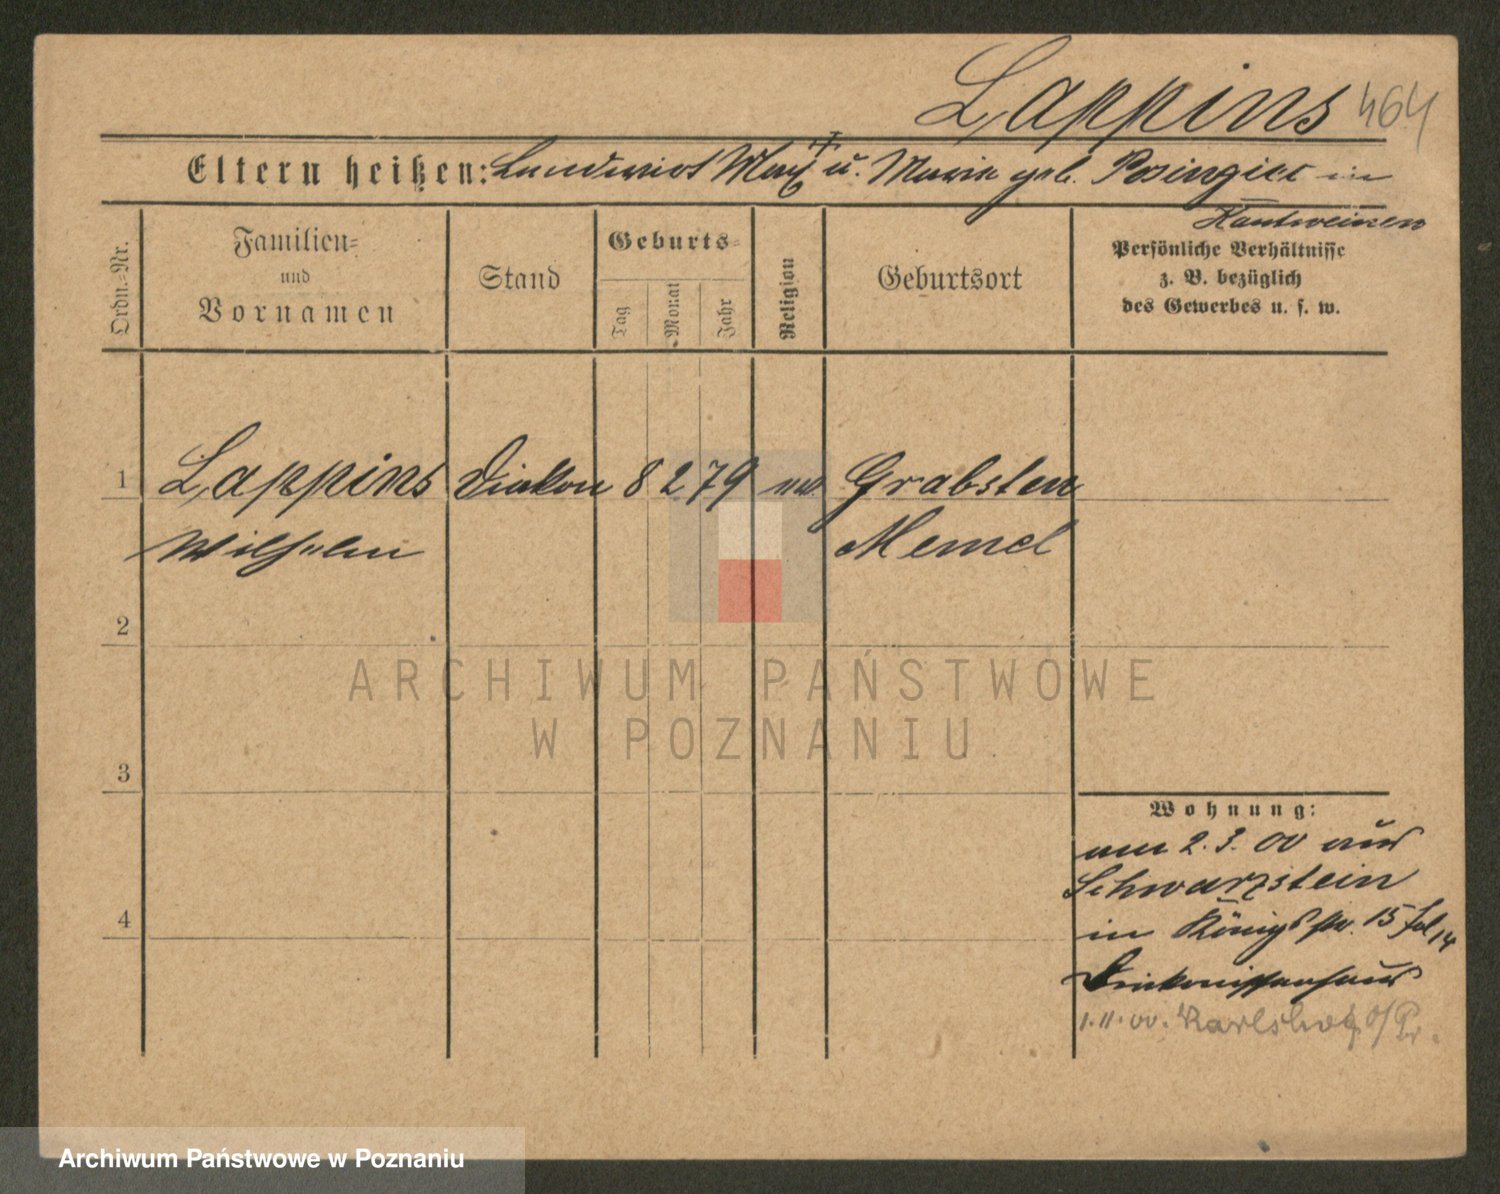 Lappins 464
Eltern heißen: Landwirt Max † u. Marie geb. in
Kantweinen
Ordn.-Nr.
Familien-
und
Vornamen
Stand
Geburts-
Tag
Monat
Jahr
Religion
Geburtsort
Persönliche Verhältnisse
z. B. bezüglich
des Gewerbes u. s. w.
1 Lappins Diakon 8 2 79 Grabsten
Wilhelm Memel
2
ARCHIWUM PAŃSTWOWE
W POZNANIU
3
Wohnung:
am 2. 3. 00 aus
Schwarzstein
in Königsstr. 15 14
4
Diakonissenhaus
1. 11. 00. Karlshof O/Pr.
Archiwum Państwowe w Poznaniu